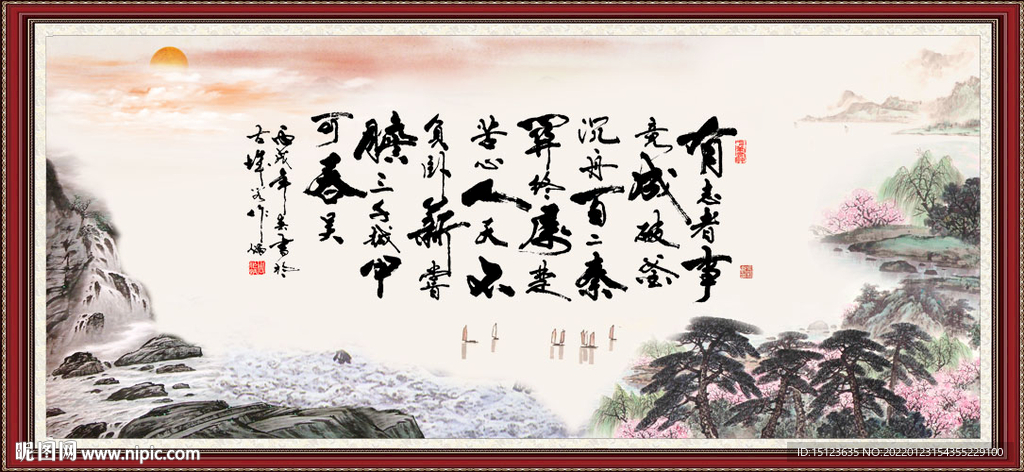 有志者事
竟成破釜
沉舟百二秦
關终屬楚
苦心人天不
負卧薪嘗
膽三千越甲
可吞吴
丙戌年書於
昵图网 www.nipic.com
ID:15123635 NO:20220123154355229100